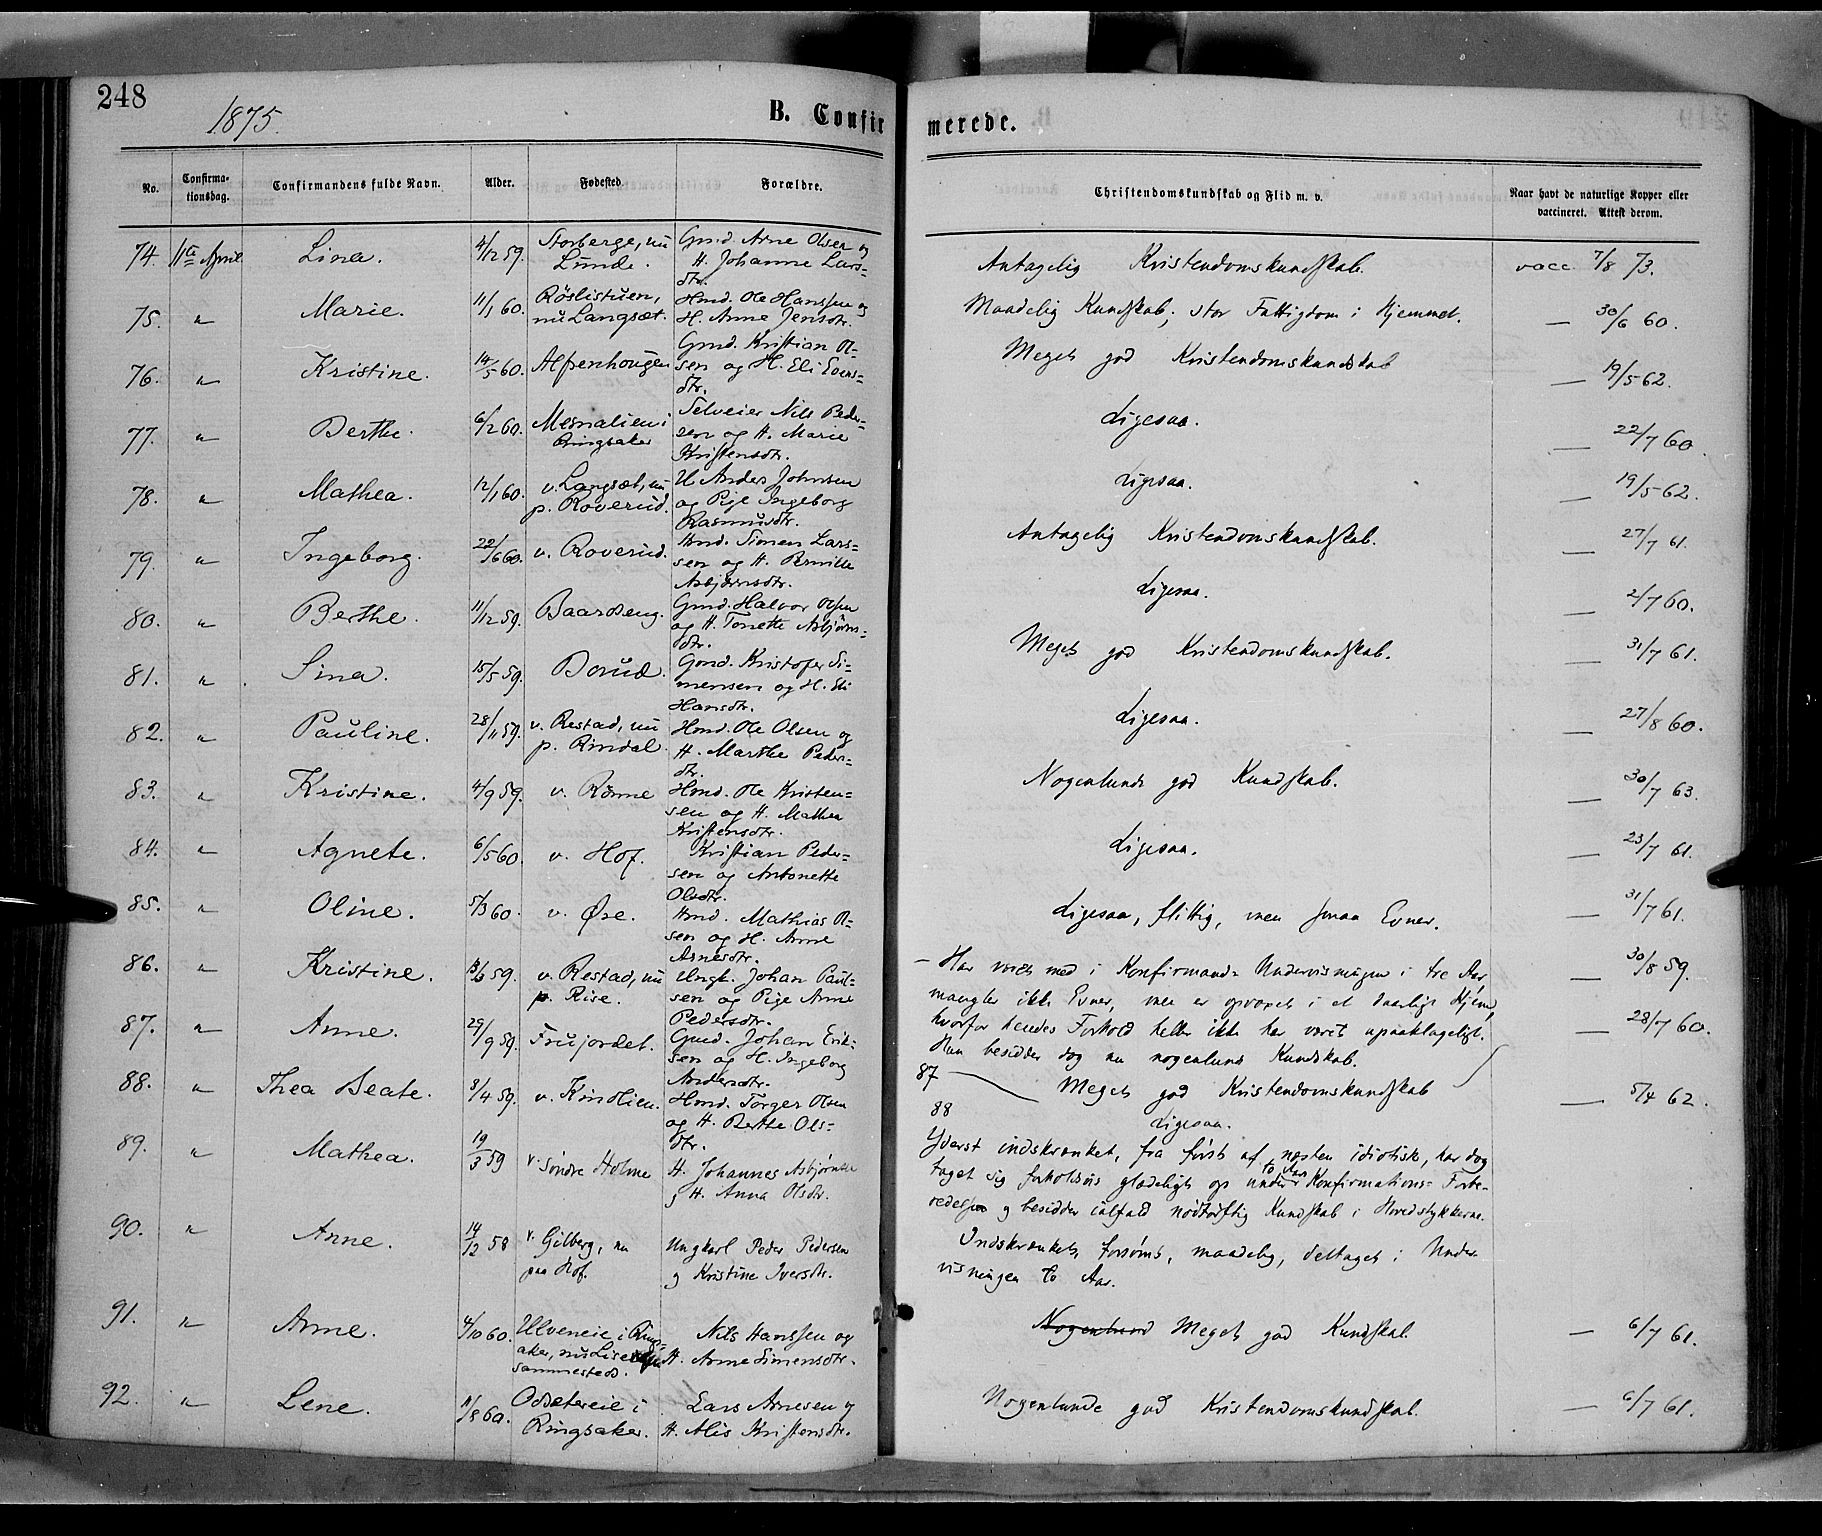 248
1875.
B. Confirmerede.
No. Confirmationsdag. Confirmandens fulde Navn. Alder. Fødested. Forældre. Christendomskundskab og Flid m. v. Naar havt de naturlige Kopper eller vaccineret. Attest derom.
74. 11te April Lina. 4/12 59. Storberge, nu Lunde. Gmd. Arne Olsen og H. Johanne Larsdtr. Antagelig Kristendomskundskab. vacc. 7/8 73.
75. " Marie. 11/1 60. Röslistuen, nu Langsæt. Hmd. Ole Hanssen og H. Anne Jensdtr. Maadelig Kundskab, stor Fattigdom i Hjemmet. — 30/6 60.
76. " Kristine. 14/5 60. Alfsenhougen Gmd. Kristian Olsen og H. Eli Evensdtr. Meget god Kristendomskundskab — 19/5 62.
77. " Berthe. 6/2 60. Mesnalien i Ringsaker Selveier Nils Pedersen og H. Marie Kristensdtr. Ligesaa. — 22/7 60.
78. " Mathea. 12/1 60. v. Langsæt, nu p. Roverud. U. Anders Johnsen og Pige Ingeborg Rasmusdtr. Ligesaa. — 19/5 62.
79. " Ingeborg. 22/6 60. v. Roverud. Hmd. Simen Larssen og H. Pernille Asbjørnsdtr. Antagelig Kristendomskundskab. — 27/7 61.
80. " Berthe. 11/12 59. Baardseng. Gmd. Halvor Olsen og H. Tonette Asbjørnsdtr. Ligesaa. — 2/7 60.
81. " Sina. 15/5 59. Borud. Gmd. Kristofer Simensen og H. Eli Hansdtr. Meget god Kristendomskundskab. — 31/7 61.
82. " Pauline. 28/11 59. v. Restad, nu p. Rindal. Hmd. Ole Olsen og H. Marthe Pedersdtr. Ligesaa. — 27/8 60.
83. " Kristine. 4/9 59. v. Rönne Hmd. Ole Kristensen og H. Mathea Kristensdtr. Nogenlunde god Kundskab. — 30/7 63.
84. " Agnete. 6/5 60. v. Hof. Kristian Pedersen og Antonette Olsdtr. Ligesaa. — 23/7 61.
85. " Oline. 5/3 60. v. Øre. Hmd. Mathias Olsen og H. Anne Arnesdtr. Ligesaa, flittig, men smaa Evner. — 31/7 61.
86. " Kristine. 59. v. Restad, nu p. Rise. Ungk. Johan Paulsen og Pige Anne Pedersdtr. — Har været med i Konfirmand-Undervisningen i tre Aar, — 30/8 59.
mangler ikke Evner, men er opvoxet i et daarligt Hjem,
hvorfor hendes Forhold heller ikke har været upaaklageligt.
Hun besidder dog nu nogenlunde Kundskab.
87. " Anne. 29/9 59. Frujordet. Gmd. Johan Eriksen og H. Ingeborg Andersdtr. 87 — Meget god Kristendomskundskab — 28/7 60.
88. " Thea Beate. 8/4 59. v. Kindlien. Hmd. Torger Olsen og H. Berthe Olsdtr. 88 Ligesaa. — 5/4 62.
89. " Mathea. 19/3 59 v. Søndre Holme H. Johannes Asbjørnsen og H. Anna Olsdtr. Yderst indskrænket, fra først af næsten idiotisk, har dog
taget sig forholdsvis glædeligt op under to Aars Konfirmations-Forbe-
redelse og besidder ialfald nødtørftig Kundskab i Hovedstykkerne.
90. " Anne. 14/12 58 v. Gilberg, nu paa Hof. Ungkarl Peder Pedersen og Kristine Iversdtr. Indskrænket, forsømt, maadelig, deltaget i Under-
visningen to Aar.
91. " Anne. 4/10 60. Ulveneie i Ringsaker, nu sammesteds. Nils Hanssen og H. Anne Simensdtr. Nogenlund Meget god Kundskab. — 6/7 61.
92. " Lene. 11/8 60. Oddetereie i Ringsaker. Lars Arnesen og H. Alis Kristensdtr. Nogenlunde god Kristendomskundskab. — 6/7 61.